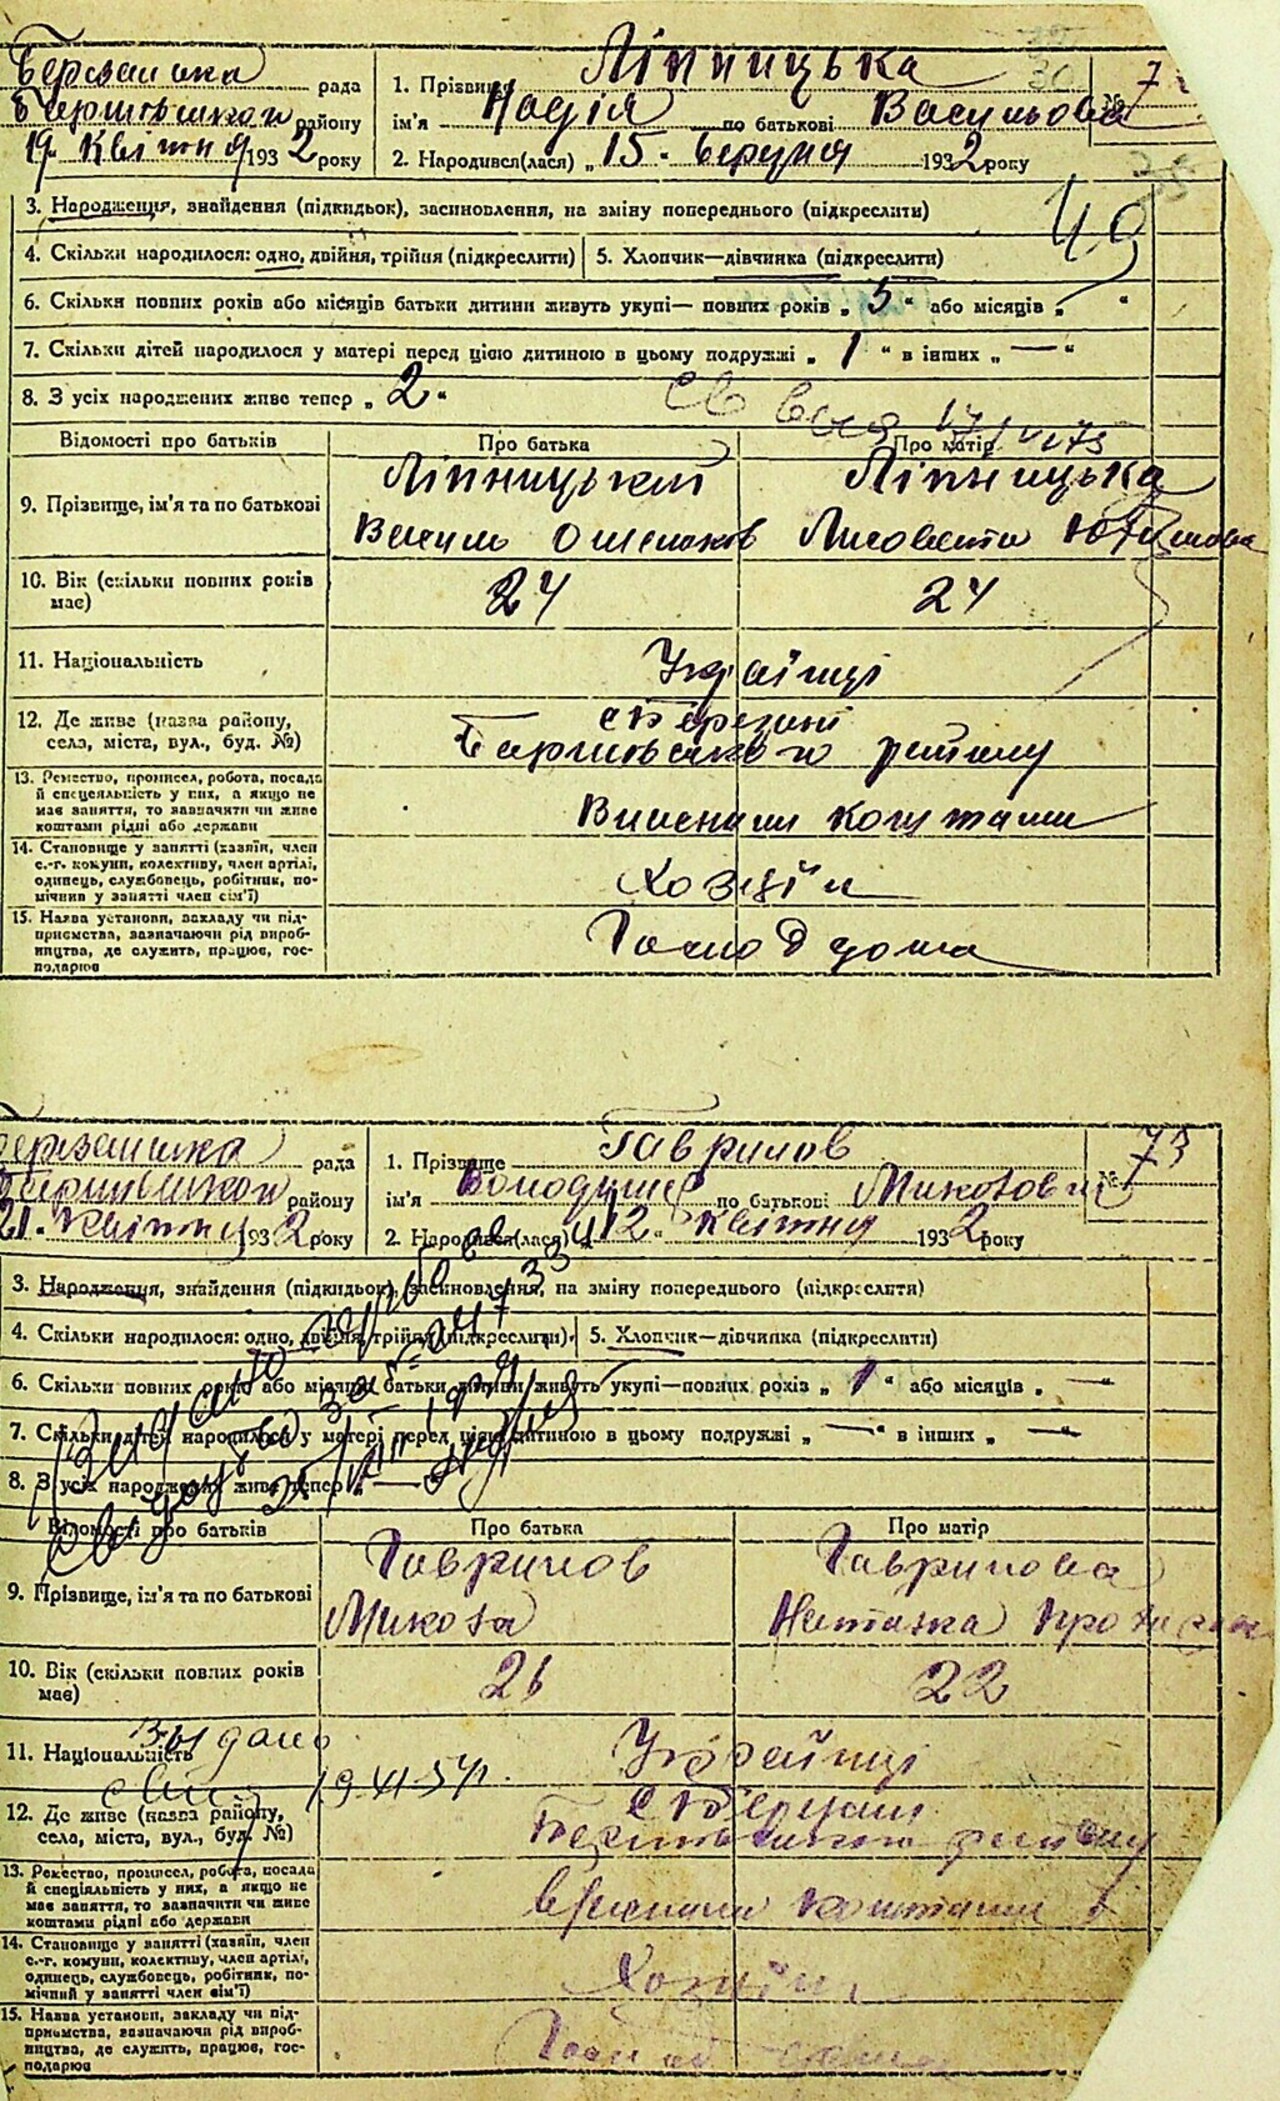 Березанська рада
Баришівського району
19. Квітня 1932 року
1. Прізвище Ліпницька
ім'я Надія по батькові Васильовна
№ 7
2. Народився(лася) „15. березня 1932 року
3. Народження, знайдення (підкидьок), засиновлення, на зміну попереднього (підкреслити)
49
4. Скільки народилося: одно, двійня, трійня (підкреслити)
5. Хлопчик—дівчинка (підкреслити)
6. Скільки повних років або місяців батьки дитини живуть укупі— повних років „ 5 “ або місяців „ “
7. Скільки дітей народилося у матері перед цією дитиною в цьому подружжі „ 1 “ в інших „ — “
8. З усіх народжених живе тепер „ 2 “
Відомості про батьків
Про батька
Про матір
9. Прізвище, ім'я та по батькові
Ліпницький
Василь
Ліпницька
10. Вік (скільки повних років
має)
24
24
11. Національність
Українці
12. Де живе (назва району,
села, міста, вул., буд. №)
с Березані
Баришівського району
13. Ремество, промисел, робота, посада
й спеціяльність у них, а якщо не
має заняття, то зазначити чи живе
коштами рідні або держави
коштами
14. Становище у занятті (хазяїн, член
с.-г. комуни, колективу, член артілі,
одинець, службовець, робітник, по-
мічник у занятті член сім'ї)
Хозяїн
15. Назва установи, закладу чи під-
приємства, зазначаючи рід вироб-
ництва, де служить, працює, гос-
подарює
Господ дома
Березанська рада
Баришівського району
21. Квітня 1932 року
1. Прізвище Гаврилов
ім'я Володимир по батькові Миколович
№ 73
2. Народився(лася) „12.“ Квітня 1932 року
3. Народження, знайдення (підкидьок), засиновлення, на зміну попереднього (підкреслити)
4. Скільки народилося: одно, двійня, трійня (підкреслити)
5. Хлопчик—дівчинка (підкреслити)
6. Скільки повних років або місяців батьки дитини живуть укупі—повних років „ 1 “ або місяців „ — “
7. Скільки дітей народилося у матері перед цією дитиною в цьому подружжі „ — “ в інших „ — “
8. З усіх народжених живе тепер „ —
Відомості про батьків
Про батька
Про матір
9. Прізвище, ім'я та по батькові
Гаврилов
Микола
Гаврилова
Наталка
10. Вік (скільки повних років
має)
26
22
11. Національність
Українці
Выдано
19 XI-54.
12. Де живе (назва району,
села, міста, вул., буд. №)
с Березані
Баришівського району
13. Ремество, промисел, робота, посада
й спеціяльність у них, а якщо не
має заняття, то зазначити чи живе
коштами рідні або держави
власними коштами
14. Становище у занятті (хазяїн, член
с.-г. комуни, колективу, член артілі,
одинець, службовець, робітник, по-
мічний у занятті член сім'ї)
Хозяїн
15. Назва установи, закладу чи під-
приємства, зазначаючи рід вироб-
ництва, де служить, працює, гос-
подарює